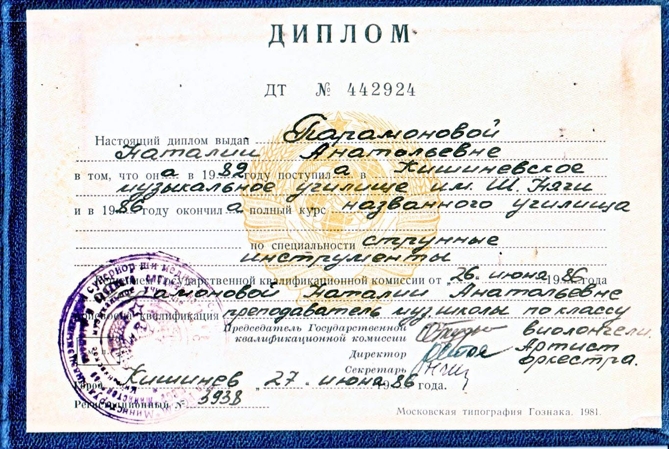 ДИПЛОМ
ДТ № 442924
Настоящий диплом выдан Парамоновой
Наталии Анатольевне
в том, что она в 1982 году поступила в Кишиневское
музыкальное училище им. Ш. Няги
и в 1986 году окончила полный курс названного училища
по специальности струнные
инструменты
Решением Государственной квалификационной комиссии от 26 июня 1986 года
Парамоновой Наталии Анатольевне
присвоена квалификация преподаватель муз. школы по классу
Председатель Государственной виолончели.
квалификационной комиссии
Директор Артист
оркестра.
Секретарь
Город Кишинев, „27 " июня 1986 года.
Регистрационный № 3938
Московская типография Гознака. 1981.